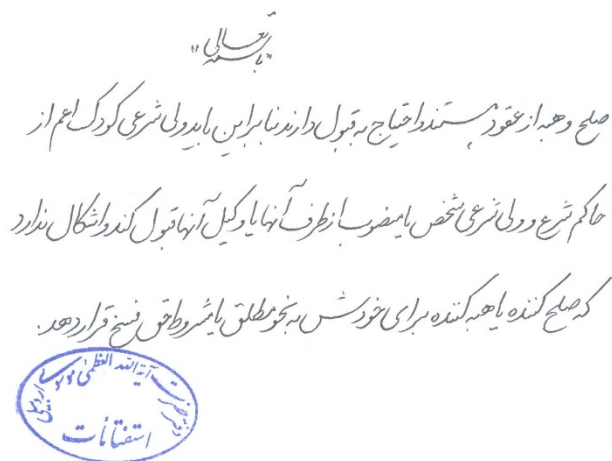 «باسمه تعالی»
صلح و هبه از عقود هستند و احتیاج به قبول دارند بنابراین باید ولی شرعی کودک اعم از
حاکم شرع و ولی شرعی شخص یا منصوب از طرف آنها یا وکیل آنها قبول کند و اشکال ندارد
که صلح کننده یا هبه کننده برای خودش به نحو مطلق یا مشروط حق فسخ قرار دهد.
دفتر حضرت آیة الله العظمی موسوی اردبیلی
استفتائات